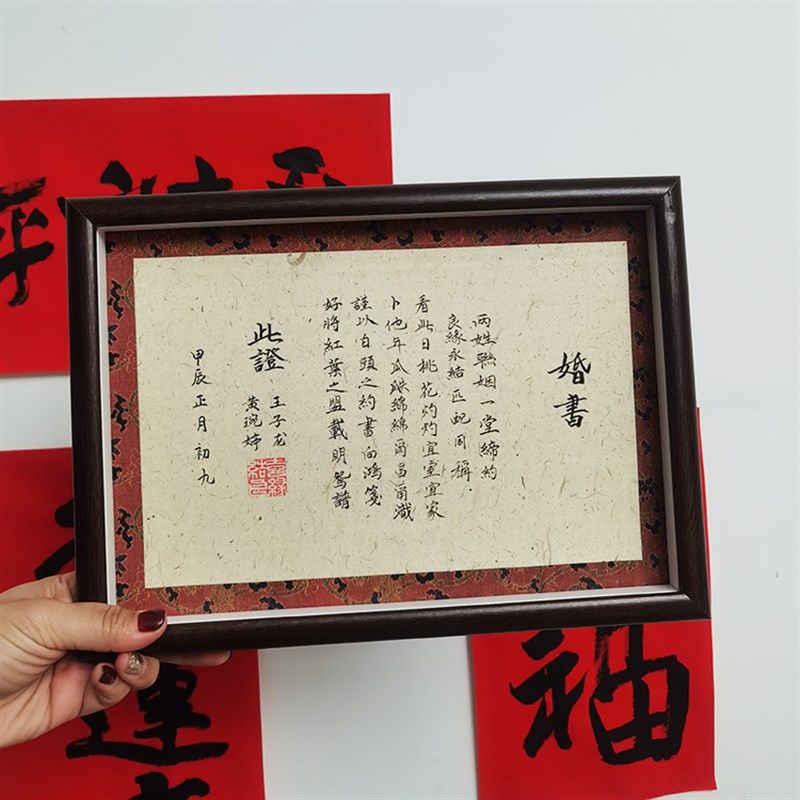 婚書
兩姓聯姻一堂締約
良緣永結匹配同稱
看此日桃花灼灼宜室宜家
卜他年瓜瓞綿綿爾昌爾熾
謹以白頭之約書向鴻箋
好將紅葉之盟載明鴛譜
此證
王子龙
黄琬婷
甲辰正月初九
平
運